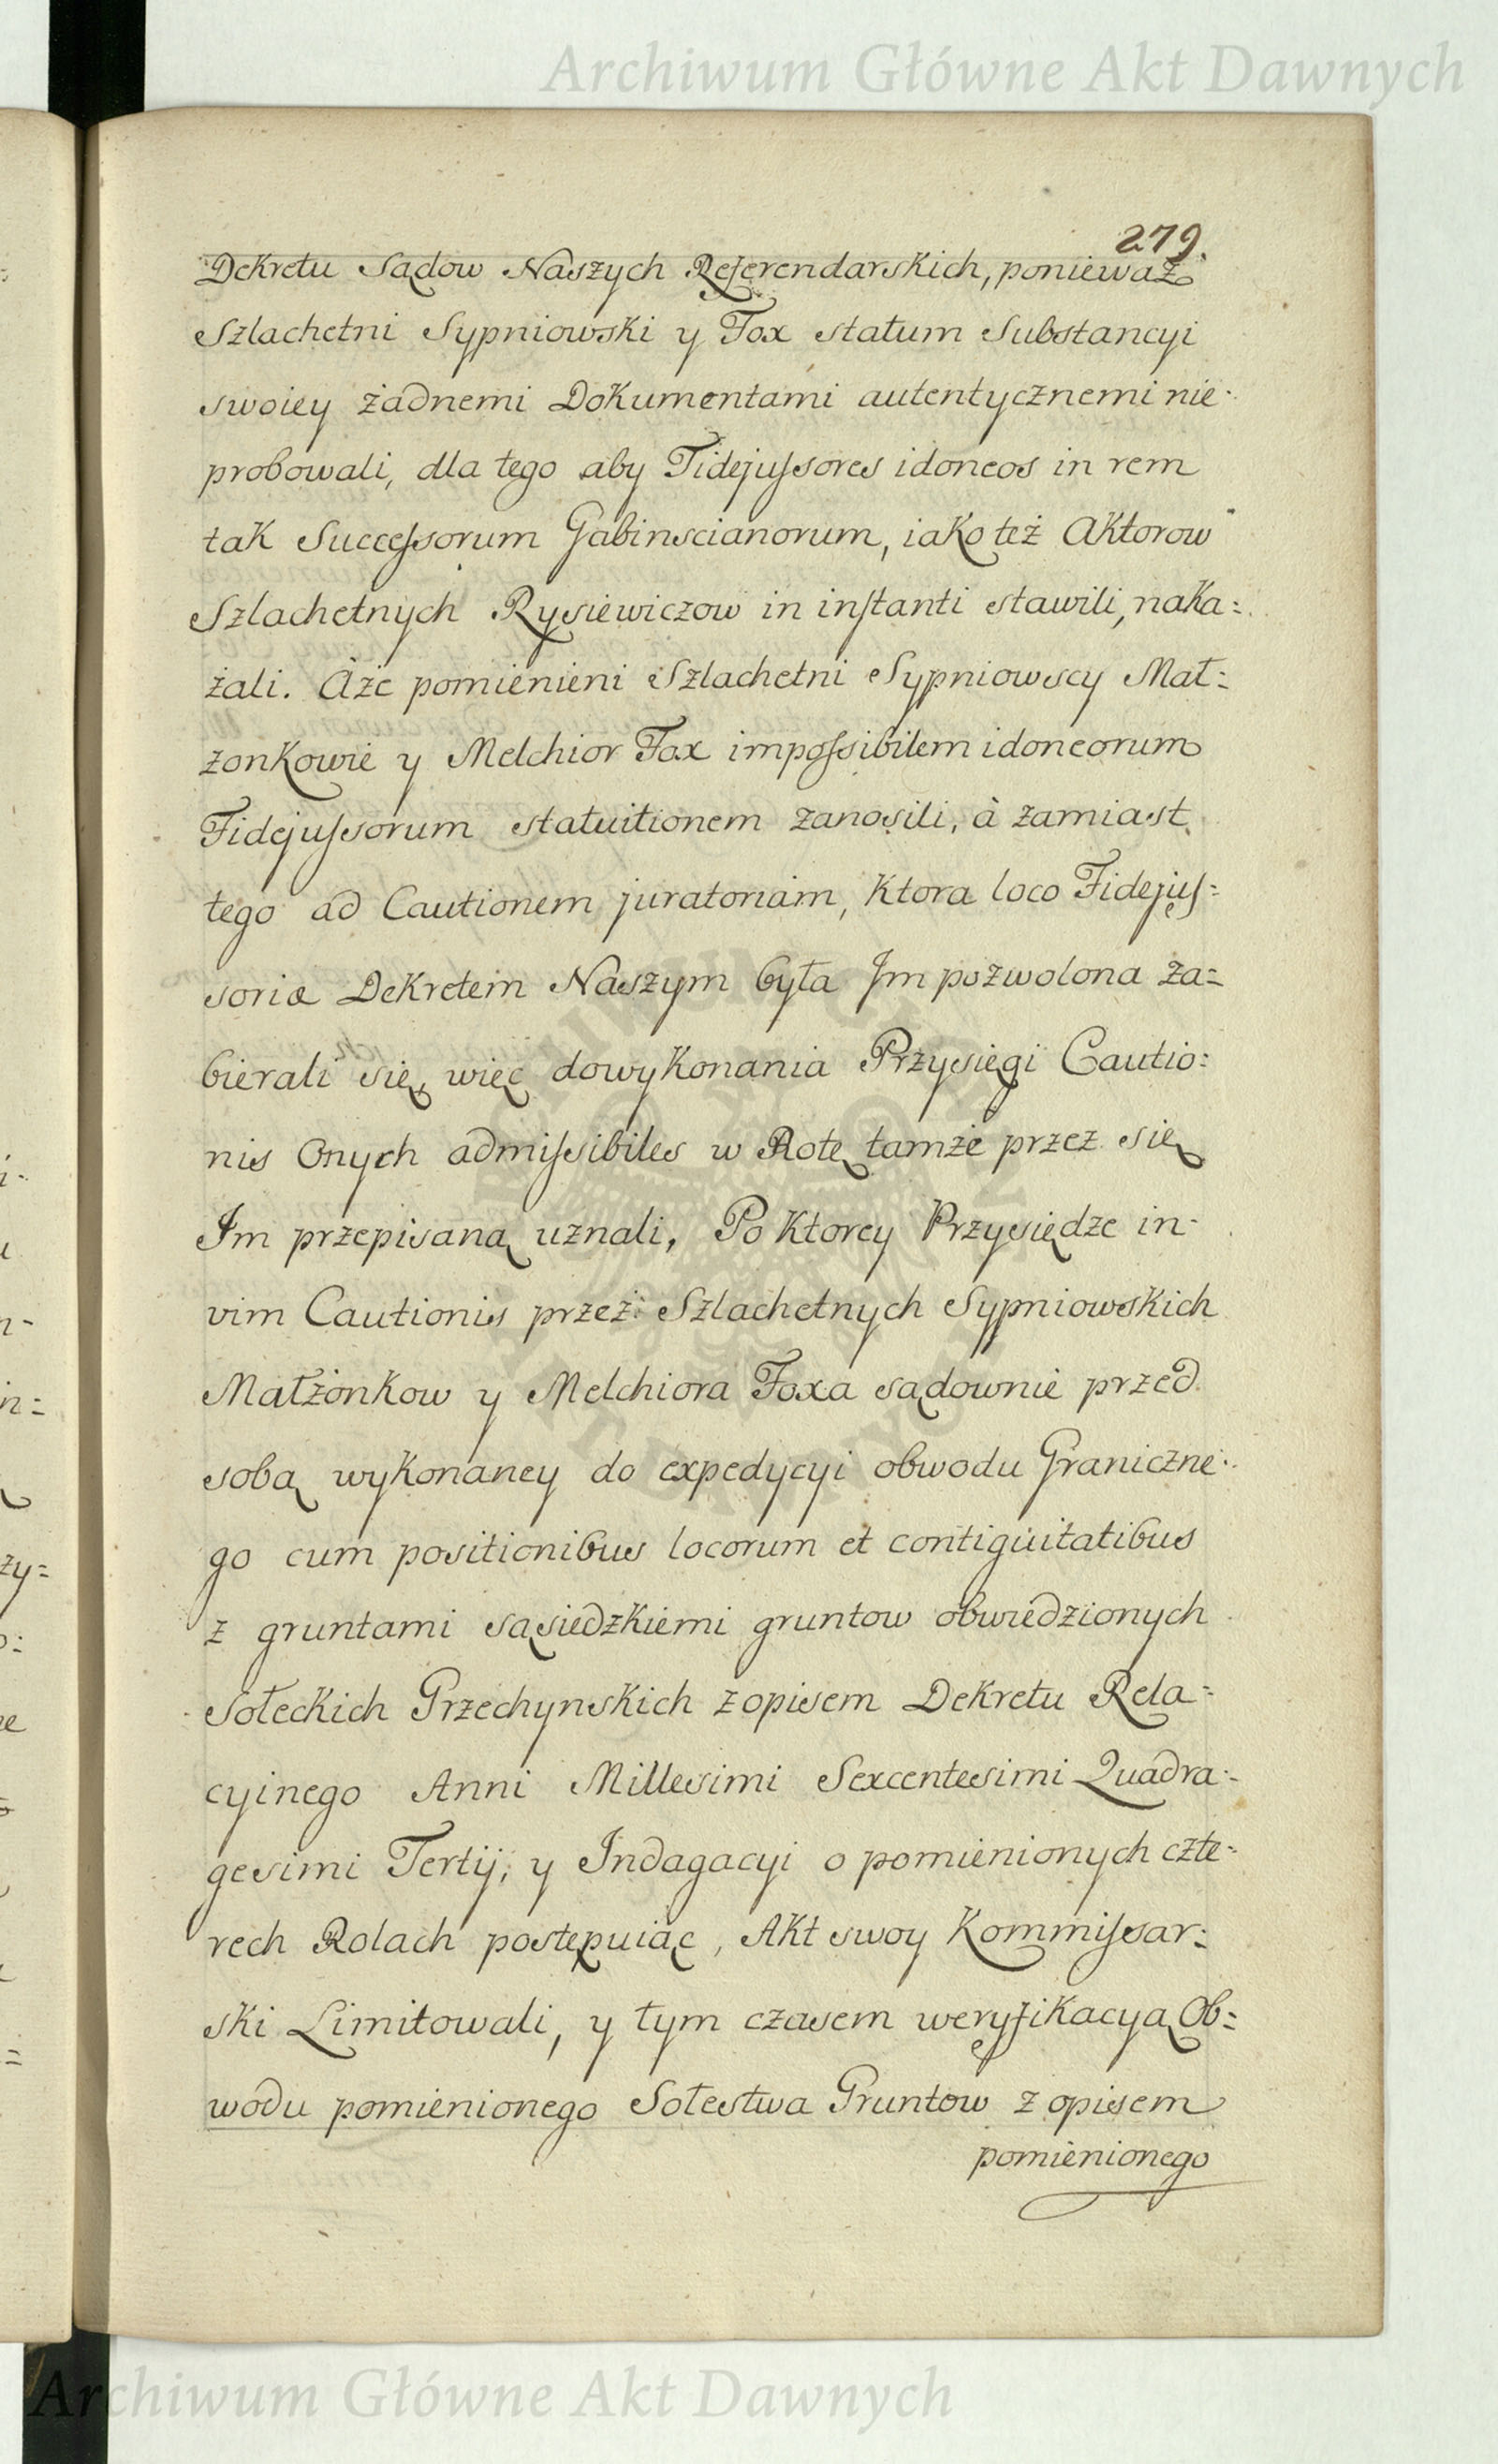 Archiwum Główne Akt Dawnych
279.
Dekretu Sądow Naszych Referendarskich, ponieważ
Szlachetni Sypniowski y Fox statum Substancyi
swoiey żadnemi Dokumentami autentycznemi nie-
probowali, dla tego aby Fidejuſsores idoneos in rem
tak Succeſsorum Gabinscianorum, iako też Aktorow
Szlachetnych Rysiewiczow in inſtanti stawili, naka=
żali. Aże pomienieni Szlachetni Sypniowscy Mał=
żonkowie y Melchior Fox impoſsibilem idoneorum
Fidejuſsorum statuitionem zanosili, à zamiast
tego ad Cautionem juratoriam, Ktora loco Fidejuſ=
soriæ Dekretem Naszym była Im pozwolona za=
bierali się, więc do wykonania Przysięgi Cautio=
nis Onych admiſsibiles w Rotę tamże przez się
Im przepisaną uznali, Po Ktorey Przysiędze in-
vim Cautionis przez Szlachetnych Sypniowskich
Małżonkow y Melchiora Foxa sądownie przed
sobą wykonaney do expedycyi obwodu Graniczne-
go cum positionibus locorum et contiguitatibus
z gruntami sąsiedzkiemi gruntow obwiedzionych
Sołeckich Grzechynskich z opisem Dekretu Rela=
cyinego Anni Millesimi Sexcentesimi Quadra=
gesimi Tertij, y Indagacyi o pomienionych czte=
rech Rolach postępuiąc, Akt swoy Kommiſsar=
ski Limitowali, y tym czasem weryfikacyą Ob=
wodu pomienionego Sołestwa Gruntow z opisem
pomienionego
Archiwum Główne Akt Dawnych